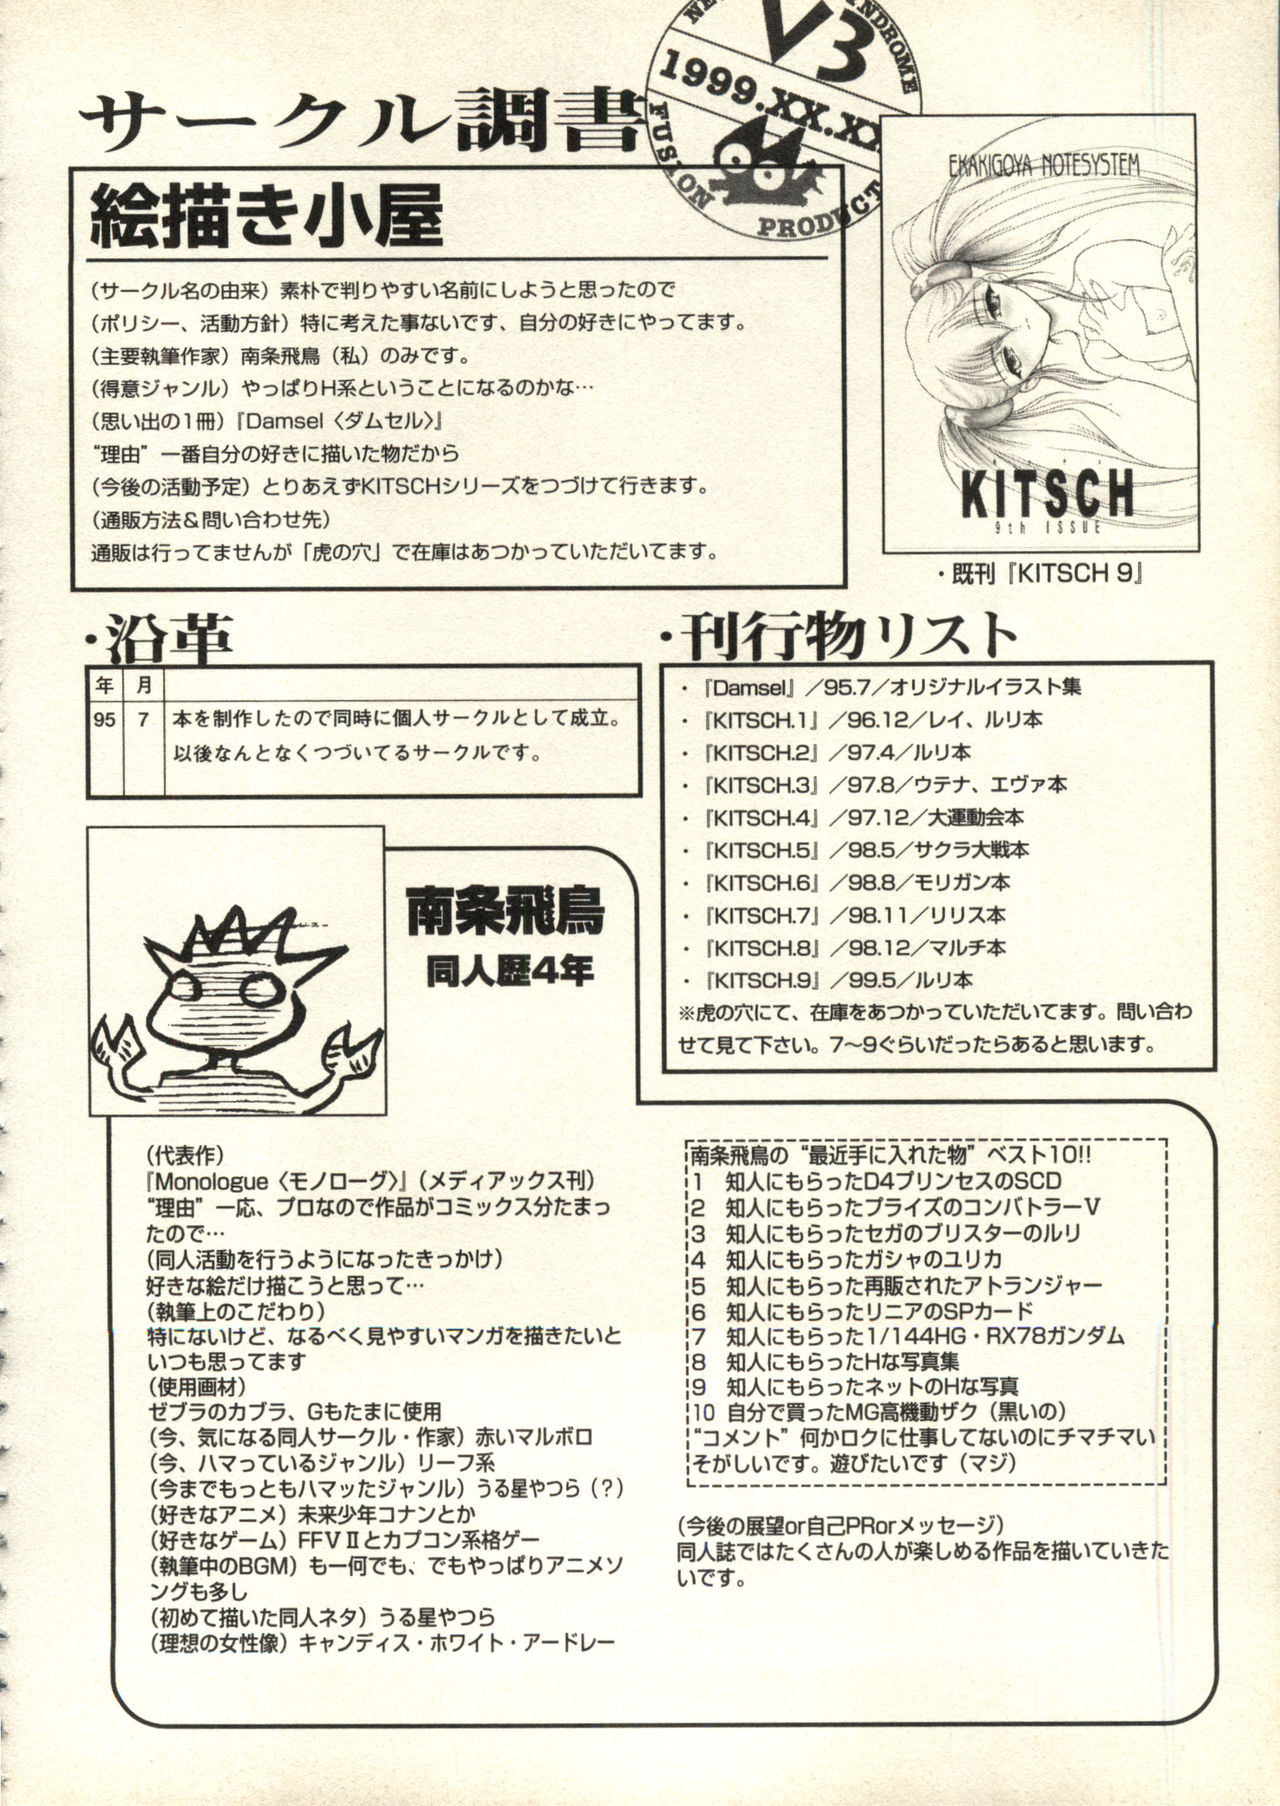 サークル調書
V3
NDROME
1999.XX.XX
FUSION PRODUCT
絵描き小屋
（サークル名の由来）素朴で判りやすい名前にしようと思ったので
（ポリシー、活動方針）特に考えた事ないです、自分の好きにやってます。
（主要執筆作家）南条飛鳥（私）のみです。
（得意ジャンル）やっぱりH系ということになるのかな…
（思い出の1冊）『Damsel〈ダムセル〉』
“理由”一番自分の好きに描いた物だから
（今後の活動予定）とりあえずKITSCHシリーズをつづけて行きます。
（通販方法＆問い合わせ先）
通販は行ってませんが「虎の穴」で在庫はあつかっていただいてます。
EKAKIGOYA NOTESYSTEM
KITSCH
9th ISSUE
・既刊『KITSCH 9』
・沿革
年 月
95 7 本を制作したので同時に個人サークルとして成立。
以後なんとなくつづいてるサークルです。
・刊行物リスト
・『Damsel』／95.7／オリジナルイラスト集
・『KITSCH.1』／96.12／レイ、ルリ本
・『KITSCH.2』／97.4／ルリ本
・『KITSCH.3』／97.8／ウテナ、エヴァ本
・『KITSCH.4』／97.12／大運動会本
・『KITSCH.5』／98.5／サクラ大戦本
・『KITSCH.6』／98.8／モリガン本
・『KITSCH.7』／98.11／リリス本
・『KITSCH.8』／98.12／マルチ本
・『KITSCH.9』／99.5／ルリ本
※虎の穴にて、在庫をあつかっていただいてます。問い合わ
せて見て下さい。7〜9ぐらいだったらあると思います。
南条飛鳥
同人歴4年
（代表作）
『Monologue〈モノローグ〉』（メディアックス刊）
“理由”一応、プロなので作品がコミックス分たまっ
たので…
（同人活動を行うようになったきっかけ）
好きな絵だけ描こうと思って…
（執筆上のこだわり）
特にないけど、なるべく見やすいマンガを描きたいと
いつも思ってます
（使用画材）
ゼブラのカブラ、Gもたまに使用
（今、気になる同人サークル・作家）赤いマルボロ
（今、ハマっているジャンル）リーフ系
（今までもっともハマッたジャンル）うる星やつら（？）
（好きなアニメ）未来少年コナンとか
（好きなゲーム）FFⅦとカプコン系格ゲー
（執筆中のBGM）も一何でも、でもやっぱりアニメソ
ングも多し
（初めて描いた同人ネタ）うる星やつら
（理想の女性像）キャンディス・ホワイト・アードレー
南条飛鳥の“最近手に入れた物”ベスト10!!
1 知人にもらったD4プリンセスのSCD
2 知人にもらったプライズのコンバトラーV
3 知人にもらったセガのブリスターのルリ
4 知人にもらったガシャのユリカ
5 知人にもらった再販されたアトランジャー
6 知人にもらったリニアのSPカード
7 知人にもらった1/144HG・RX78ガンダム
8 知人にもらったHな写真集
9 知人にもらったネットのHな写真
10 自分で買ったMG高機動ザク（黒いの）
“コメント”何かロクに仕事してないのにチマチマい
そがしいです。遊びたいです（マジ）
（今後の展望or自己PRorメッセージ）
同人誌ではたくさんの人が楽しめる作品を描いていきた
いです。